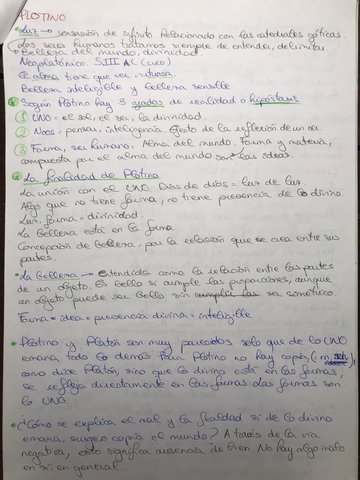 PLOTINO
• Luz → sensación de infinito. Relacionado con las catedrales góticas.
Los seres humanos tratamos siempre de entender, delimitar.
• Belleza del mundo, divinidad
Neoplatónico. S.III AC (creo)
El alma tiene que ser virtuosa.
Belleza inteligible y belleza sensible
Según Plotino hay 3 grados de realidad o hipóstasis
① UNO: el sol, el ser, la divinidad.
② Noos: pensar, inteligencia. Efecto de la reflexión de un ser
③ Forma, ser humano: Alma del mundo. Forma y materia,
compuesta por el alma del mundo son las ideas.
La finalidad de Plotino
La unión con el UNO. Dios de dios = luz de luz.
Algo que no tiene forma, no tiene presencia de lo divino.
Luz, forma = divinidad.
La Belleza está en la forma.
Concepción de Belleza: por la relación que se crea entre sus
partes.
• La Belleza → entendida como la relación entre las partes
de un objeto. Es bello si cumple las proporciones, aunque
un objeto puede ser bello sin ser simétrico.
Forma = idea = presencia divina = inteligible
• Plotino y Platón son muy parecidos solo que de lo UNO
emana todo lo demás. Para Plotino no hay copia,
como dice Platón, sino que lo divino está en las formas,
se refleja directamente en las formas. Las formas son
lo UNO.
• ¿Cómo se explica el mal y la fealdad si de lo divino
emana, surge copia el mundo? A través de la vía
negativa, esto significa ausencia de bien. No hay algo malo
en sí, en general